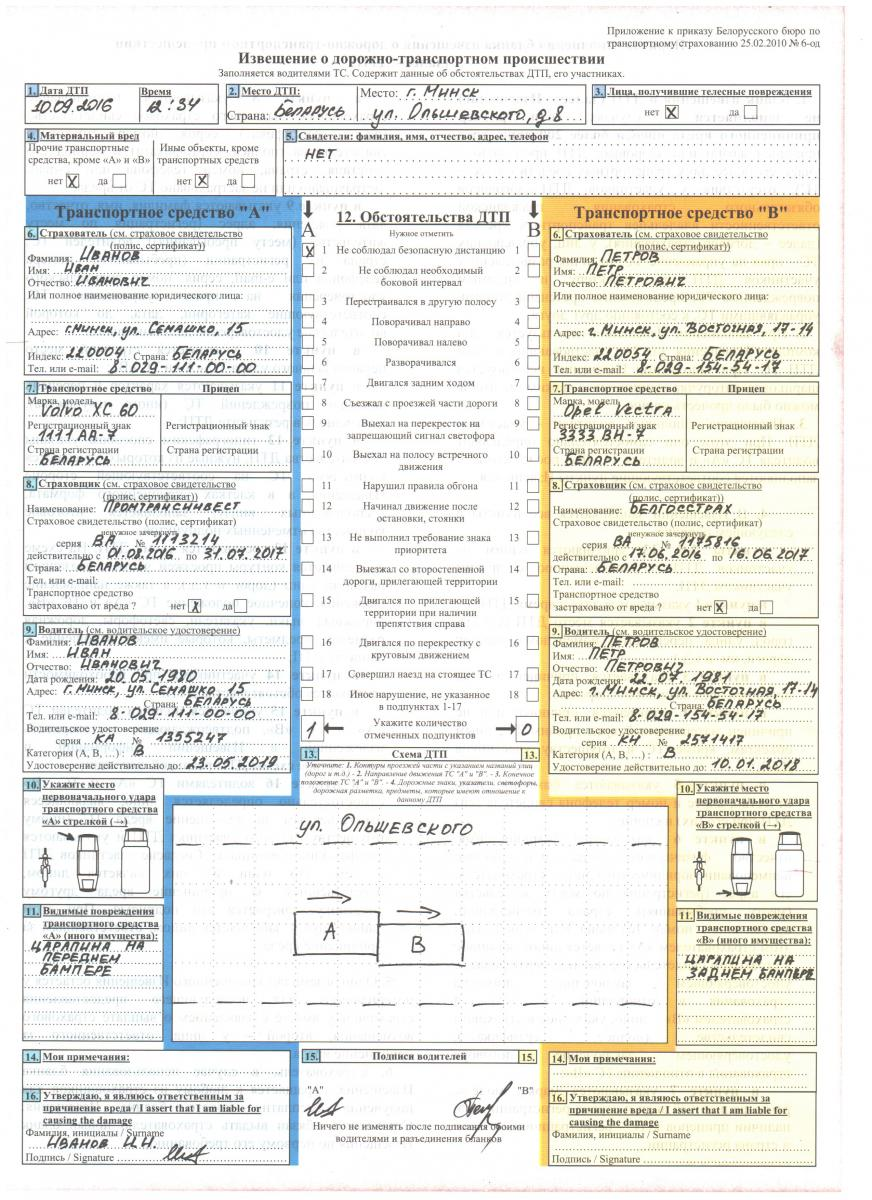 Приложение к приказу Белорусского бюро по
транспортному страхованию 25.02.2010 № 6-од
Извещение о дорожно-транспортном происшествии
Заполняется водителями ТС. Содержит данные об обстоятельствах ДТП, его участниках.
1. Дата ДТП Время
10.09.2016 12:34
2. Место ДТП: Место: г. Минск
Страна: Беларусь ул. Ольшевского, д.8
3. Лица, получившие телесные повреждения
нет X да
4. Материальный вред
Прочие транспортные средства, кроме «А» и «В»
нет X да
Иные объекты, кроме транспортных средств
нет X да
5. Свидетели: фамилия, имя, отчество, адрес, телефон
НЕТ
Транспортное средство "А"
6. Страхователь (см. страховое свидетельство
(полис, сертификат))
Фамилия: ИВАНОВ
Имя: ИВАН
Отчество: ИВАНОВИЧ
Или полное наименование юридического лица:
Адрес: г.Минск, ул. Семашко, 15
Индекс: 220004 Страна: БЕЛАРУСЬ
Тел. или e-mail: 8-029-111-00-00
7. Транспортное средство Прицеп
Марка, модель
Volvo XC 60
Регистрационный знак Регистрационный знак
1111 АА-7
Страна регистрации Страна регистрации
БЕЛАРУСЬ
8. Страховщик (см. страховое свидетельство
(полис, сертификат)
Наименование: ПРОМТРАНСИНВЕСТ
Страховое свидетельство (полис, сертификат)
ненужное зачеркнуть
серия ВА № 1113214
действительно с 01.08.2016 по 31.07.2017
Страна: БЕЛАРУСЬ
Тел. или e-mail:
Транспортное средство
застраховано от вреда ? нет X да
9. Водитель (см. водительское удостоверение)
Фамилия: ИВАНОВ
Имя: ИВАН
Отчество: ИВАНОВИЧ
Дата рождения: 20.05.1980
Адрес: г.Минск, ул Семашко 15
Страна: БЕЛАРУСЬ
Тел. или e-mail: 8-029-111-00-00
Водительское удостоверение
серия КА № 1355247
Категория (А, В, ...) : В
Удостоверение действительно до: 23.05.2019
А 12. Обстоятельства ДТП В
Нужное отметить
X 1 Не соблюдал безопасную дистанцию 1
2 Не соблюдал необходимый боковой интервал 2
3 Перестраивался в другую полосу 3
4 Поворачивал направо 4
5 Поворачивал налево 5
6 Разворачивался 6
7 Двигался задним ходом 7
8 Съезжал с проезжей части дороги 8
9 Выехал на перекресток на запрещающий сигнал светофора 9
10 Выехал на полосу встречного движения 10
11 Нарушил правила обгона 11
12 Начинал движение после остановки, стоянки 12
13 Не выполнил требование знака приоритета 13
14 Выезжал со второстепенной дороги, прилегающей территории 14
15 Двигался по прилегающей территории при наличии препятствия справа 15
16 Двигался по перекрестку с круговым движением 16
17 Совершил наезд на стоящее ТС 17
18 Иное нарушение, не указанное в подпунктах 1-17 18
1 Укажите количество отмеченных подпунктов 0
Транспортное средство "В"
6. Страхователь (см. страховое свидетельство
(полис, сертификат))
Фамилия: ПЕТРОВ
Имя: ПЕТР
Отчество: ПЕТРОВИЧ
Или полное наименование юридического лица:
Адрес: г. Минск, ул. Восточная, 17-14
Индекс: 220054 Страна: БЕЛАРУСЬ
Тел. или e-mail: 8-029-154-54-17
7. Транспортное средство Прицеп
Марка, модель
Opel Vectra
Регистрационный знак Регистрационный знак
3333 ВН-7
Страна регистрации Страна регистрации
БЕЛАРУСЬ
8. Страховщик (см. страховое свидетельство
(полис, сертификат)
Наименование: БЕЛГОССТРАХ
Страховое свидетельство (полис, сертификат)
ненужное зачеркнуть
серия ВА № 1175816
действительно с 17.06.2016 по 16.06.2017
Страна: БЕЛАРУСЬ
Тел. или e-mail:
Транспортное средство
застраховано от вреда ? нет X да
9. Водитель (см. водительское удостоверение)
Фамилия: ПЕТРОВ
Имя: ПЕТР
Отчество: ПЕТРОВИЧ
Дата рождения: 22.07.1981
Адрес: г.Минск, ул. Восточная, 17-14
Страна: БЕЛАРУСЬ
Тел. или e-mail: 8-029-154-54-17
Водительское удостоверение
серия КН № 2571417
Категория (А, В, ...) : В
Удостоверение действительно до: 10.01.2018
13. Схема ДТП 13.
Уточните: 1. Контуры проезжей части с указанием названий улиц
(дорог и т.д.) - 2. Направление движения ТС "А" и "В". - 3. Конечное
положение ТС "А" и "В". - 4. Дорожные знаки, указатели, светофоры,
дорожная разметка, предметы, которые имеют отношение к
данному ДТП
ул. Ольшевского
А
В
10. Укажите место
первоначального удара
транспортного средства
«А» стрелкой (→)
11. Видимые повреждения
транспортного средства
«А» (иного имущества):
ЦАРАПИНА НА
ПЕРЕДНЕМ
БАМПЕРЕ
10. Укажите место
первоначального удара
транспортного средства
«В» стрелкой (→)
11. Видимые повреждения
транспортного средства
«В» (иного имущества):
ЦАРАПИНА НА
ЗАДНЕМ БАМПЕРЕ
14. Мои примечания:
16. Утверждаю, я являюсь ответственным за
причинение вреда / I assert that I am liable for
causing the damage
Фамилия, инициалы / Surname
ИВАНОВ И.И.
Подпись / Signature
15. Подписи водителей 15.
"А" "В"
Ничего не изменять после подписания обоими
водителями и разъединения бланков
14. Мои примечания:
16. Утверждаю, я являюсь ответственным за
причинение вреда / I assert that I am liable for
causing the damage
Фамилия, инициалы / Surname
Подпись / Signature